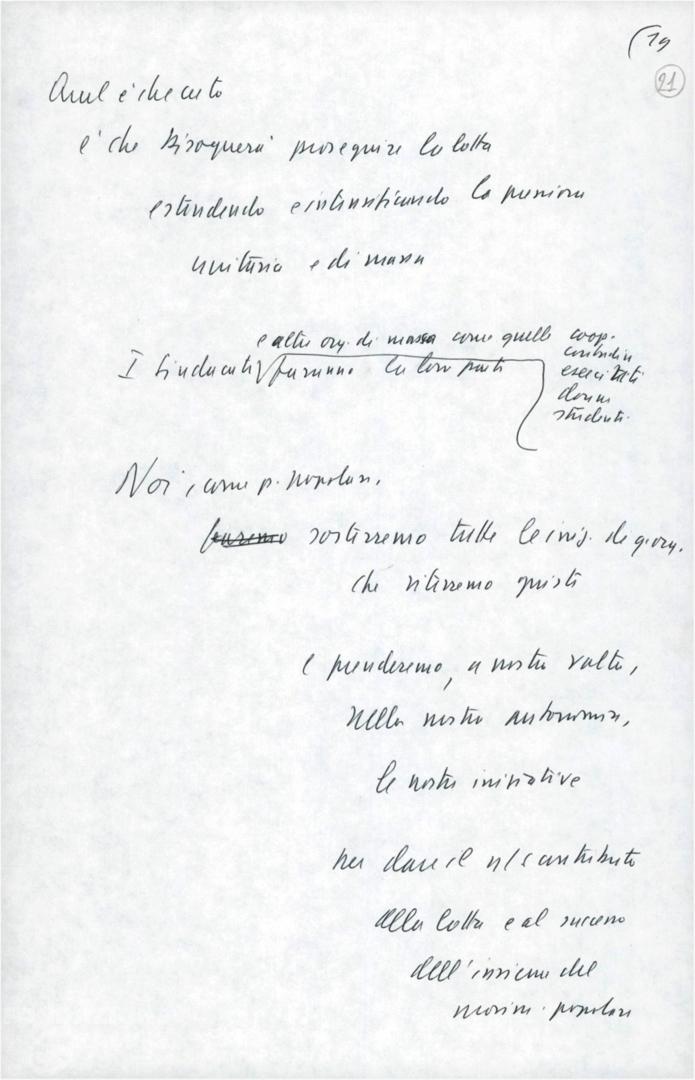 19
21
Quel è che certo
è che bisognerà proseguire la lotta
estendendo e intensificando la pressione
unitaria e di massa
e altre org. di massa come quelle coop.
contadini
I sindacati faranno la loro parte
esercenti
donne
studenti.
Noi, come p. popolare,
faremo sosterremo tutte le iniz. di
che riterremo giuste
e prenderemo, a nostra volta,
nella nostra autonomia,
le nostre iniziative
per dare il n/s contributo
alla lotta e al successo
dell'insieme del
movim. popolare